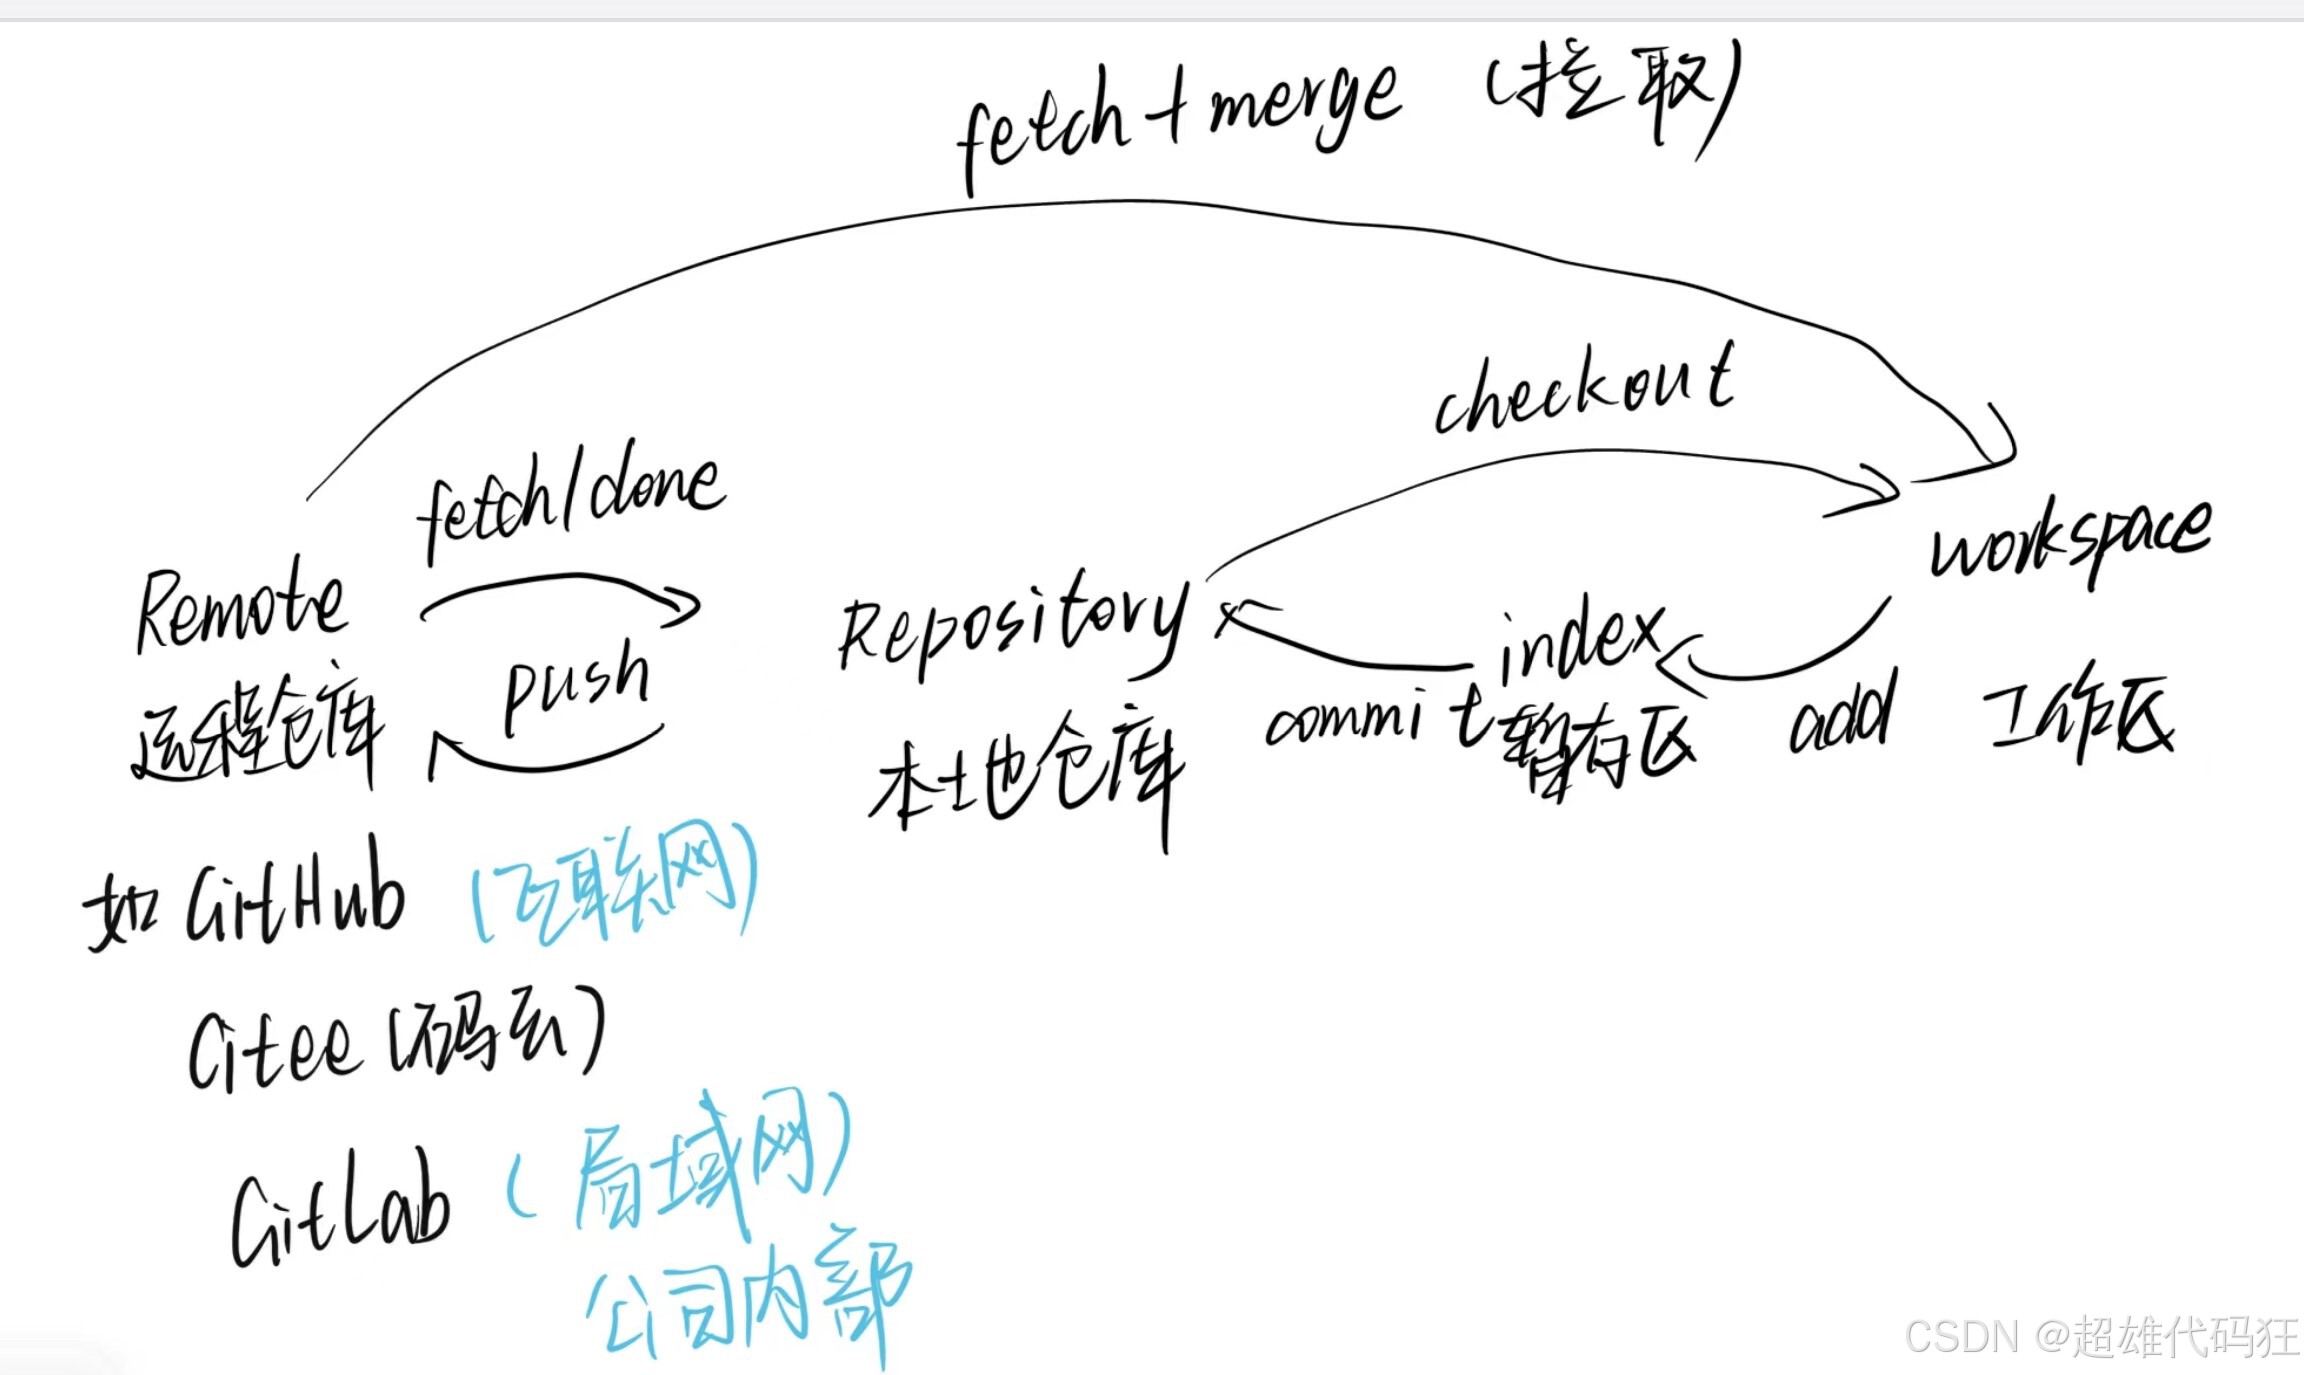 fetch+merge (拉取)
checkout
fetch/done
workspace
Remote
Repository
index
push
远程仓库
本地仓库
commit
暂存区
add
工作区
如 GitHub (互联网)
Gitee (码云)
GitLab (局域网)
公司内部
CSDN @超雄代码狂